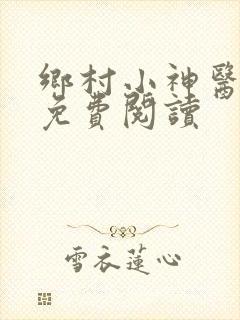 鄉村小神醫
免費閱讀
雪衣蓮心